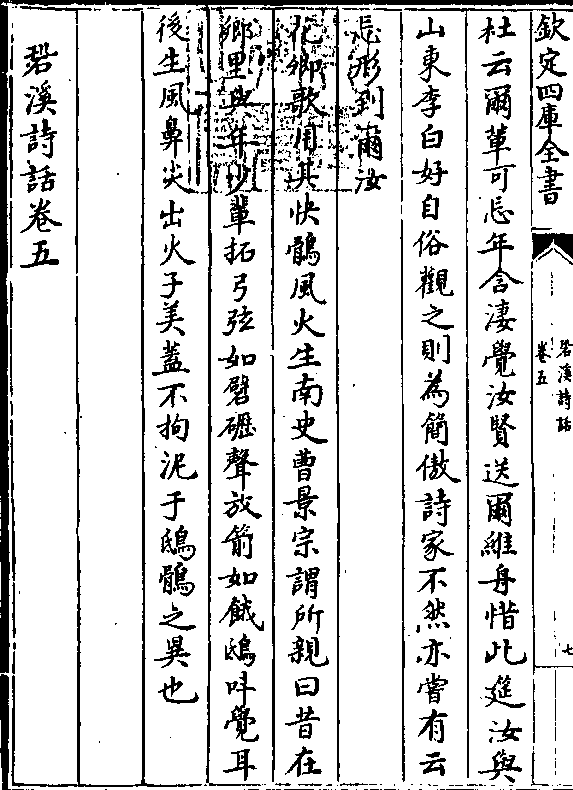 欽定四庫全書
䂬溪詩話
卷五
七
杜云爾輩可忘年含淒覺汝賢送爾維舟惜此筵汝與
山東李白好自俗觀之則為簡傲詩家不然亦嘗有云
忘形到爾汝
花卿歌用其快鶻風火生南史曹景宗謂所親曰昔在
鄉里與年少輩拓弓弦如礔礰聲放箭如餓鴟叫覺耳
後生風鼻尖出火子美蓋不拘泥于鴟鶻之異也
䂬溪詩話卷五